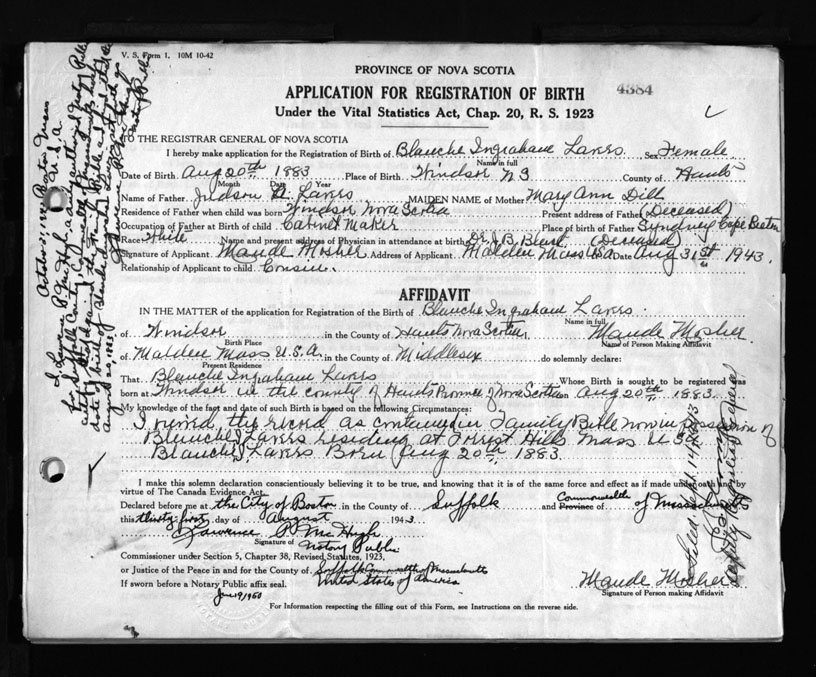 V. S. Form 1. 10M 10-42
PROVINCE OF NOVA SCOTIA
APPLICATION FOR REGISTRATION OF BIRTH
4384
Under the Vital Statistics Act, Chap. 20, R. S. 1923
TO THE REGISTRAR GENERAL OF NOVA SCOTIA
I hereby make application for the Registration of Birth of Blanche Ingraham Lakes Sex Female
Name in full
Date of Birth Aug 20th 1883 Place of Birth Windsor N S County of Hants
Month Date Year
Name of Father Judson A. Lakes MAIDEN NAME of Mother Mary Ann Dill
Residence of Father when child was born Windsor Nova Scotia Present address of Father (Deceased)
Occupation of Father at Birth of child Cabinet Maker Place of birth of Father Syndney Cape Breton
Race White Name and present address of Physician in attendance at birth Dr. J. B. (Deceased)
Signature of Applicant Maude Mosher Address of Applicant Malden Mass USA Date Aug 31st 1943.
Relationship of Applicant to child Cousin.
AFFIDAVIT
IN THE MATTER of the application for Registration of the Birth of Blanche Ingraham Lakes.
Name in full
of Windsor in the County of Hants Nova Scotia, Maude Mosher
Birth Place Name of Person Making Affidavit
of Malden Mass U.S.A. in the County of Middlesex do solemnly declare:
Present Residence
That Blanche Ingraham Lakes Whose Birth is sought to be registered was
born at Windsor in the county of Hants Province of Nova Scotia on Aug 20th 1883.
My knowledge of the fact and date of such Birth is based on the following Circumstances:
I viewed the record as contained in Family Bible now in possession of
Blanche I Lakes residing at Forest Hills Mass U S A
Blanche I. Lakes Born Aug 20th 1883.
I make this solemn declaration conscientiously believing it to be true, and knowing that it is of the same force and effect as if made under oath and by
virtue of The Canada Evidence Act.
Declared before me at the City of Boston in the County of Suffolk and Commonwealth Province of of Massachusetts
this thirty-first day of August 1943
Lawrence P. McHugh
Signature of Notary Public
Commissioner under Section 5, Chapter 38, Revised Statutes, 1923,
or Justice of the Peace in and for the County of Suffolk Commonwealth of Massachusetts
If sworn before a Notary Public affix seal. United States of America
June 9/1950
Maude Mosher
Signature of Person making Affidavit
For Information respecting the filling out of this Form, see Instructions on the reverse side.
October 1, 1943 Boston Mass
U.S.A.
I, Lawrence P. McHugh, a
Notary Public
August 20, 1883
Filed Sept 14/1943
Deputy Registrar General